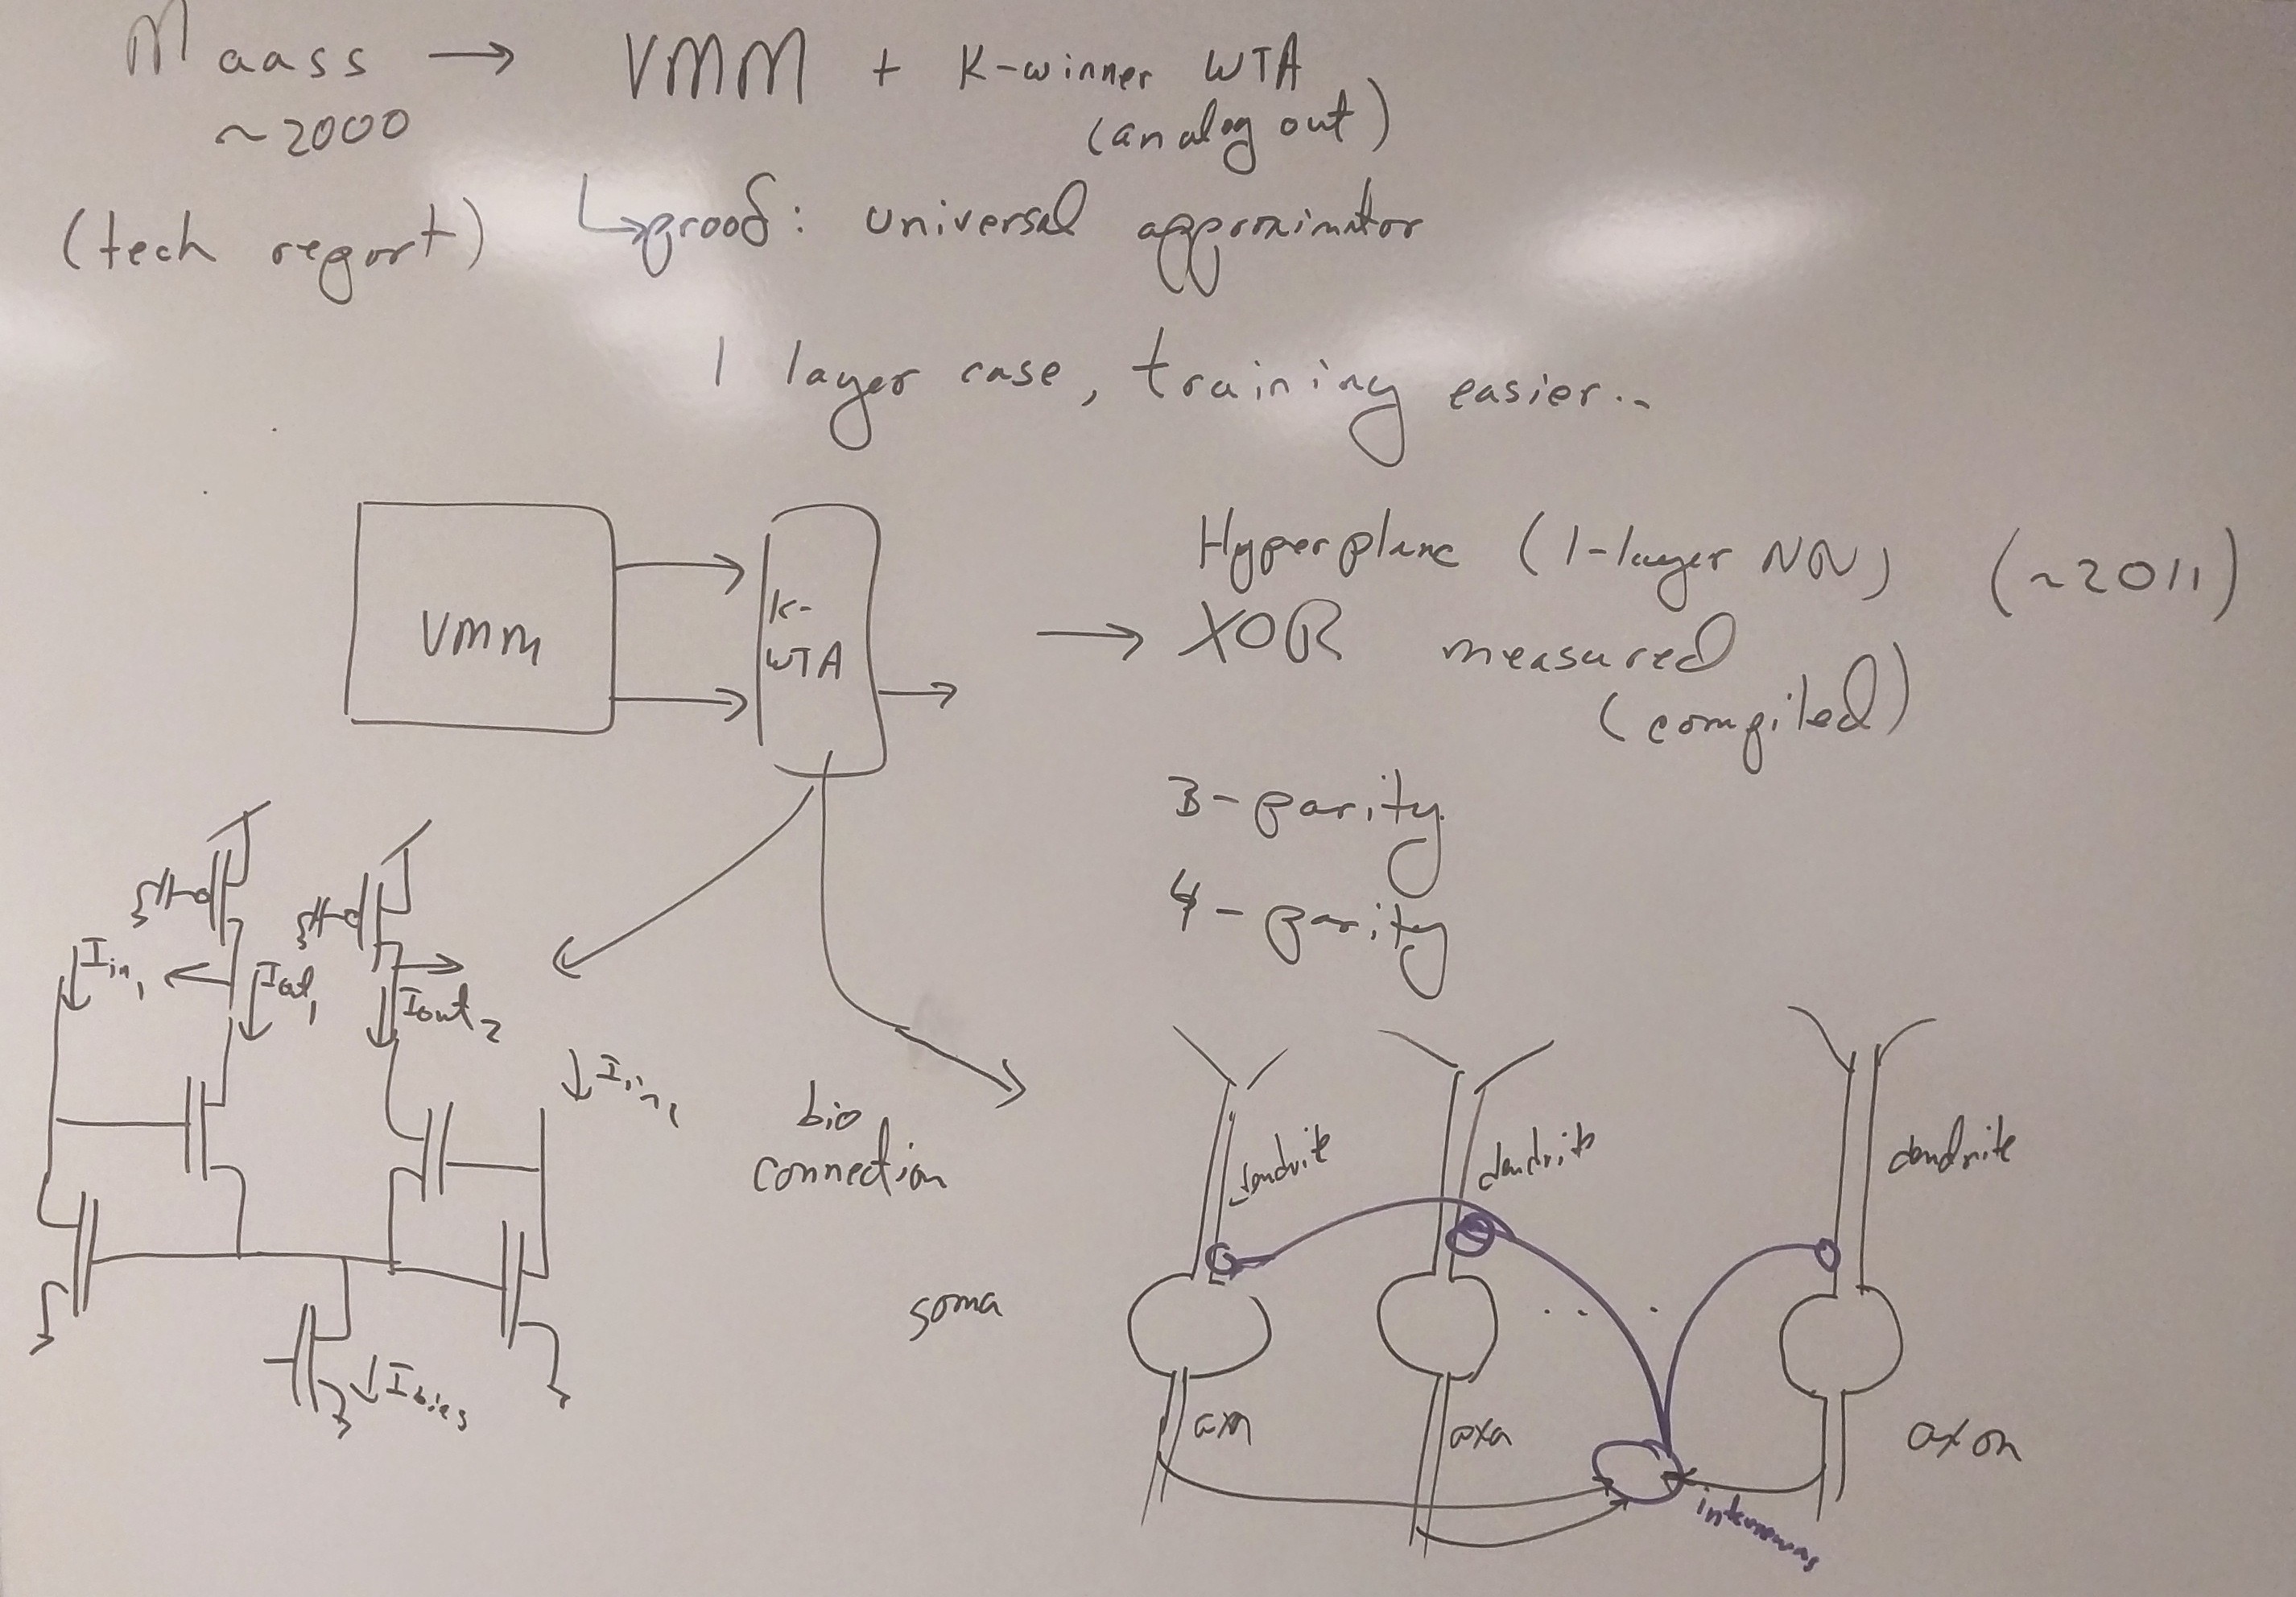 Maass → VMM + K-winner WTA
~2000 (analog out)
(tech report) ↳ proof: universal approximator
1 layer case, training easier..
VMM
K-
WTA
→ Hyperplane (1-layer NN) (~2011)
XOR measured
(compiled)
3-parity
4-parity
I in 1
I out 1
I out 2
I in 1
I bias
bio
connection
dendrite
dendrite
dendrite
soma
axn
axa
axon
interneurons